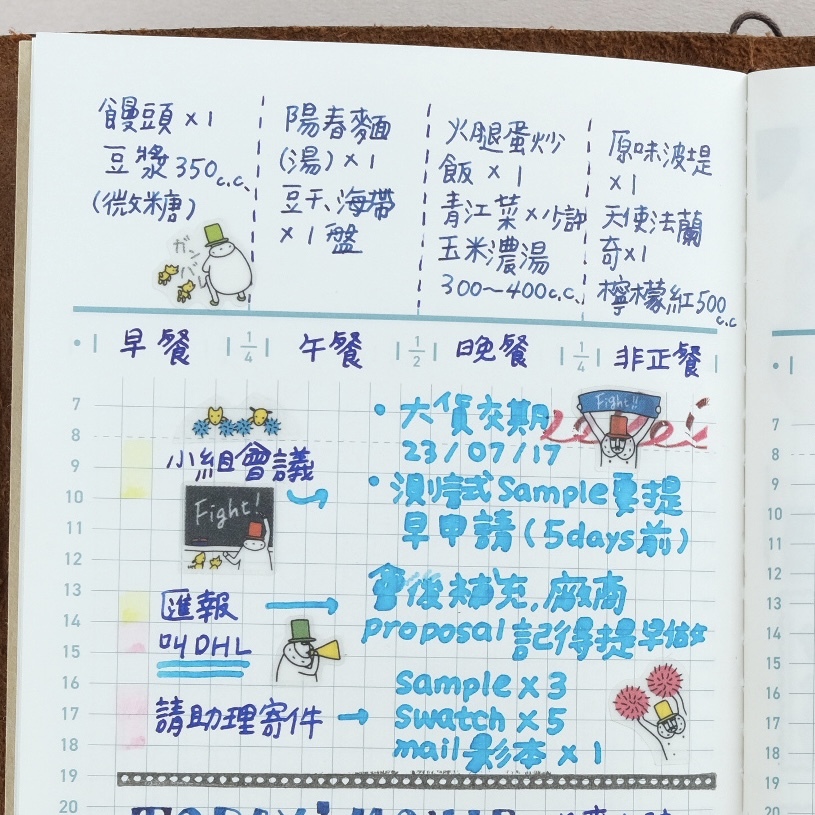 饅頭 x1
豆漿 350c.c.
(微糖)
ガンバレ
陽春麵
(湯) x1
豆干、海帶
x1盤
火腿蛋炒
飯 x 1
青江菜 x 少許
玉米濃湯
300~400c.c.
原味波堤
x1
天使法蘭
奇x1
檸檬紅500c.c
早餐
1/4
午餐
1/2
晚餐
1/4
非正餐
7
8
9
10
11
12
13
14
15
16
17
18
19
20
小組會議
Fight!
匯報
叫DHL
請助理寄件
• 大貨交期
23/07/17
Fight!!
• 測試Sample要提
早申請(5days前)
會後補充,廠商
proposal 記得提早做
Sample x 3
Swatch x 5
mail影本 x 1
7
8
9
10
11
12
13
14
15
16
17
18
19
20